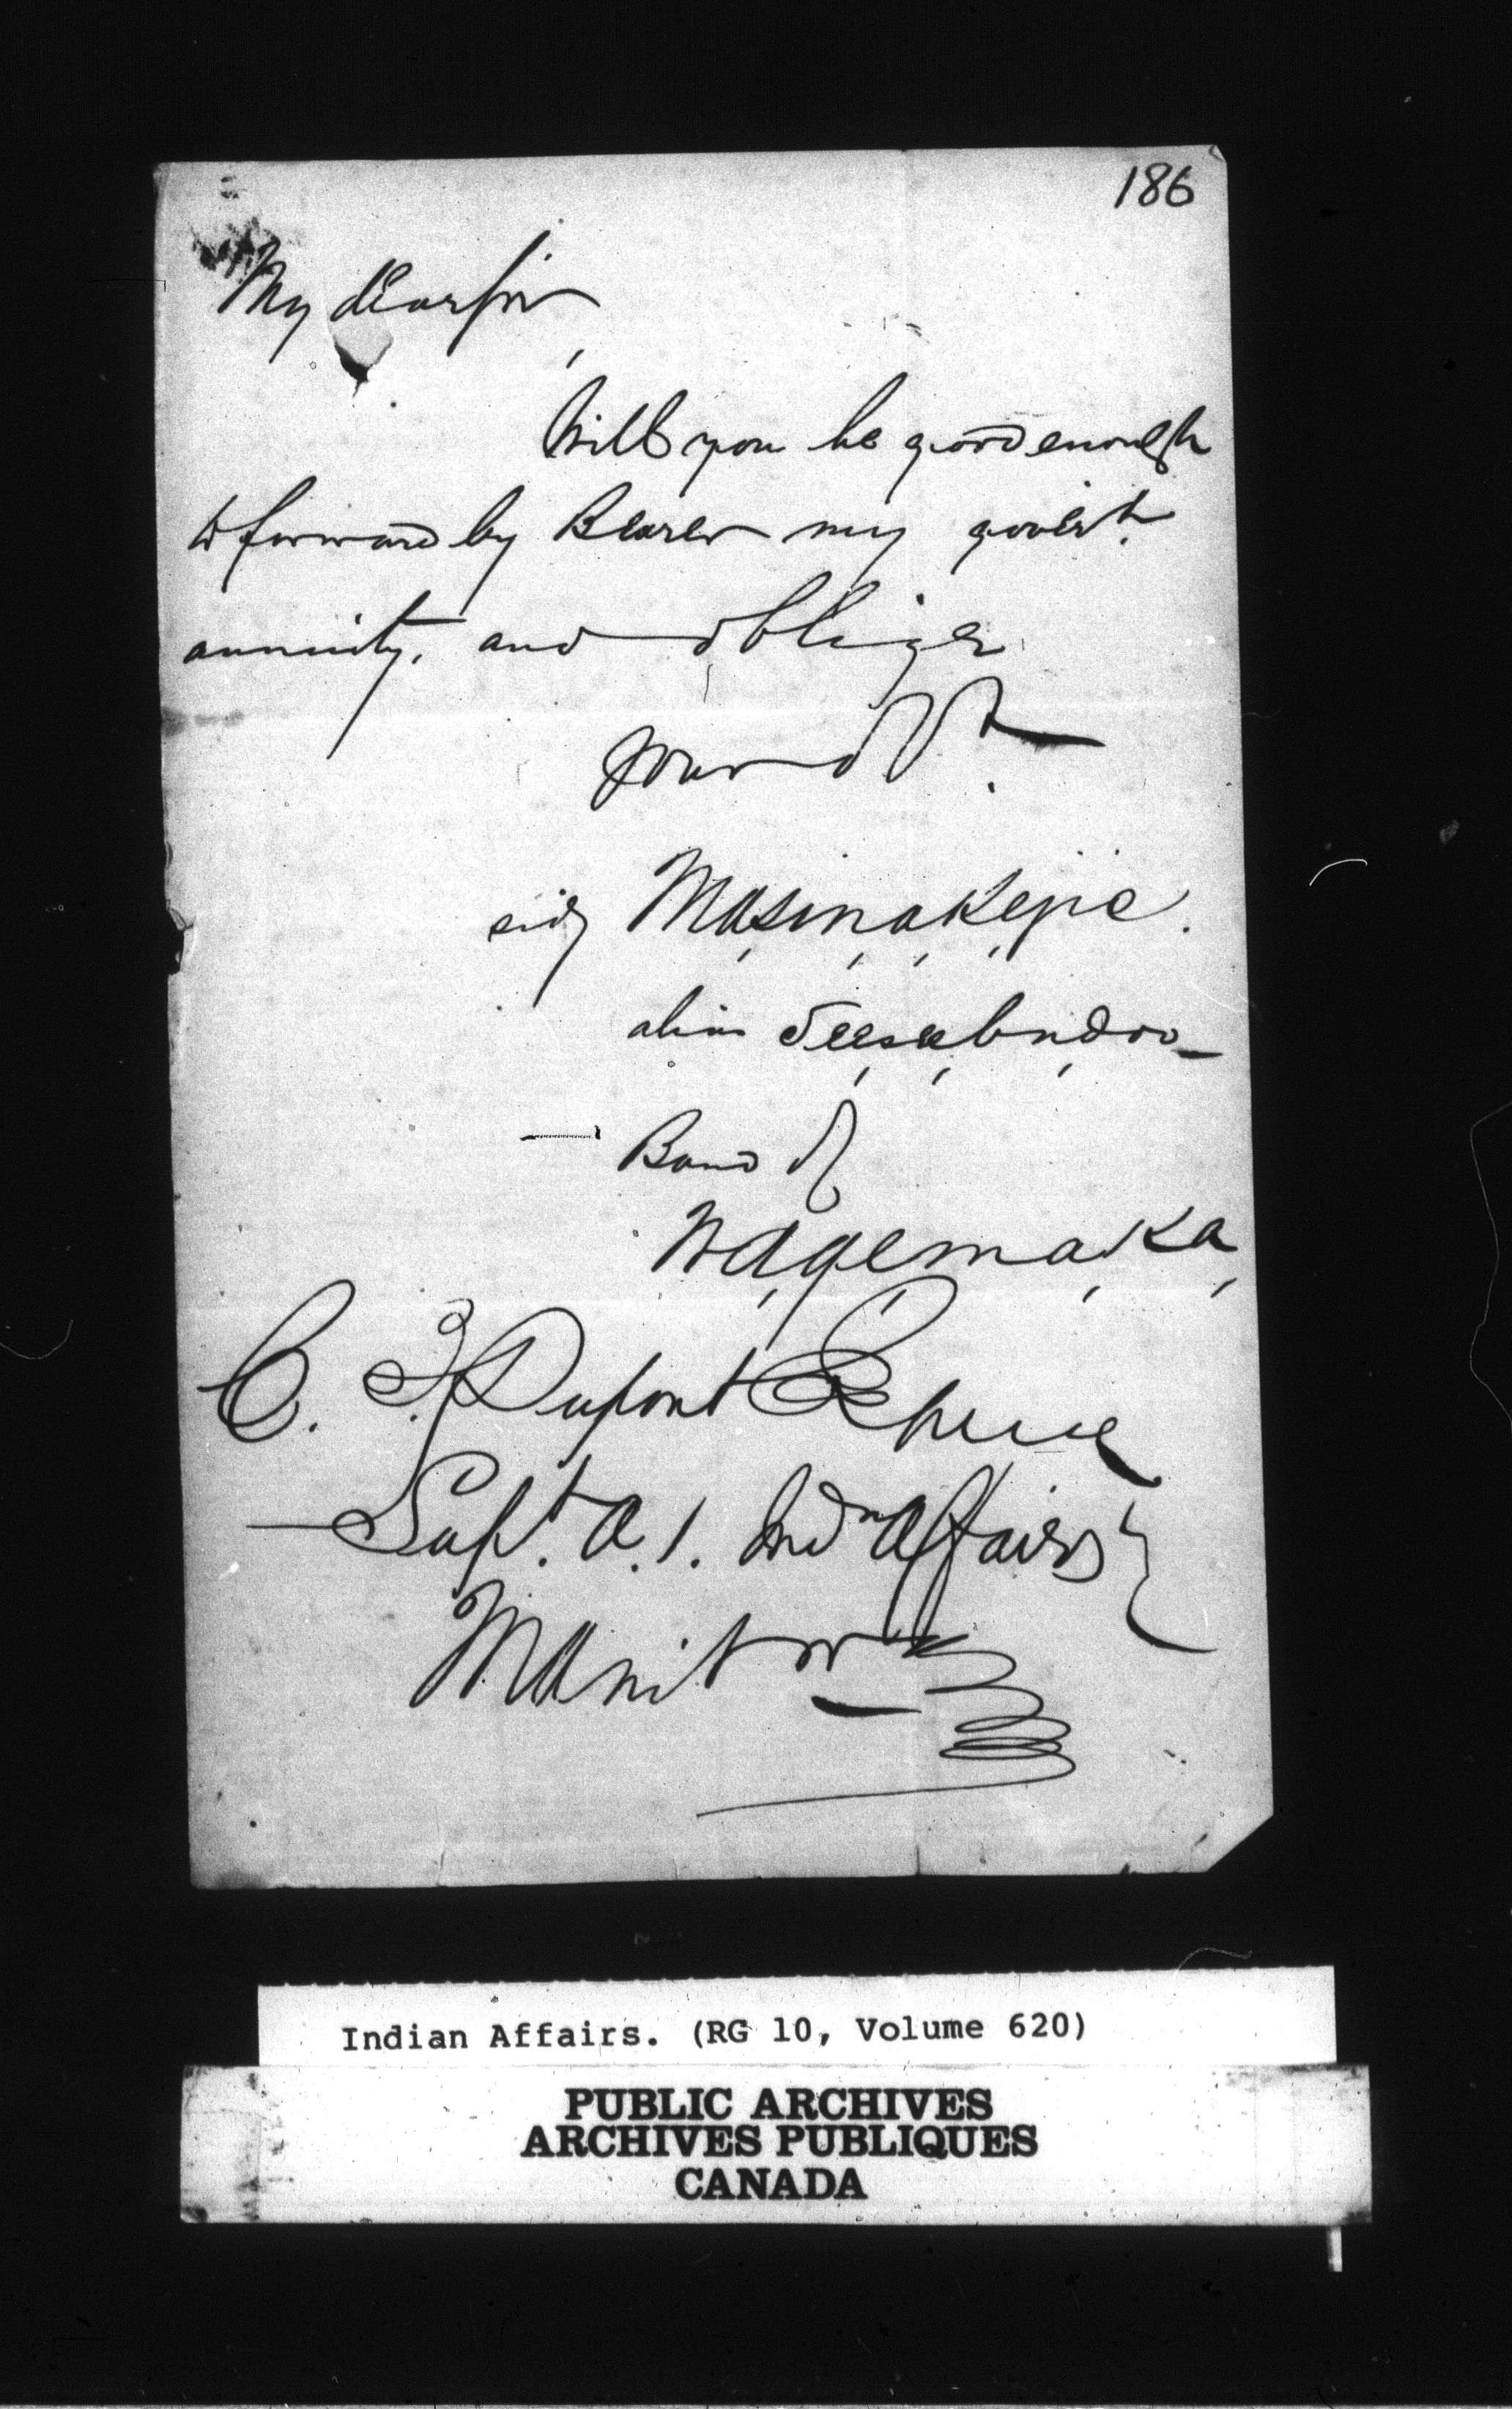 186
My dear Sir,
Will you be good enough
to forward by Bearer my gover't.
annuity, and oblige
your o S't.
Masinakejic.
alias Teesebundoo
Band of
Wagemaka
C. T. Dupont
Supt. A. 1. Indn Affairs
Manitou
Indian Affairs. (RG 10, Volume 620)
PUBLIC ARCHIVES
ARCHIVES PUBLIQUES
CANADA